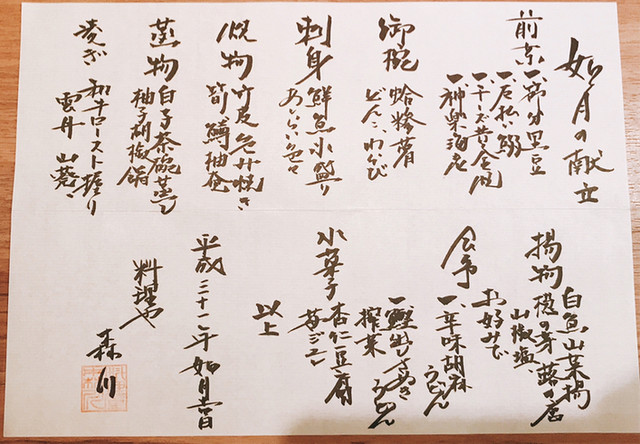 如月の献立
前菜
一、節分黒豆
一、厄払鰯
一、チーズ黄金焼
一、神楽海老
御椀
蛤糝薯
どんこ、わかび
刺身
鮮魚小盛り
あしらい色々
焼物
竹皮包み焼き
筍 鱒 柚庵
蒸物
白子茶碗蒸し
柚子胡椒餡
凌ぎ
和牛ロースト握り
雲丹 山葵
揚物
白魚山菜揚
穂の芽、蕗の薹
山椒塩
食事
お好みで
一、辛味胡麻うどん
一、鰹出しさぬきうどん
搾菜
水菓子
杏仁豆腐
苺ジュレ
以上
平成三十一年如月
料理や
森川